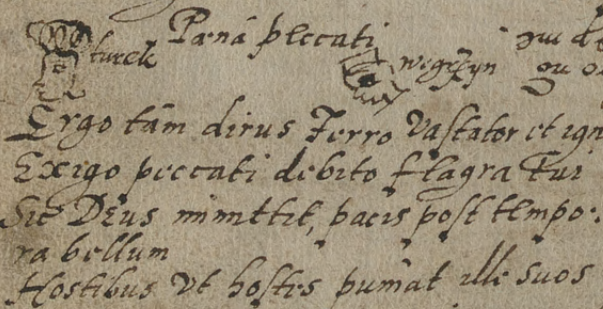 Pana͂ peccati
turek
węgrzyn
Ergo tam dirus Ferro Vastator et ign
Exigo peccati debito flagra tui
Sic Deus immittit, pacis post tempo:
ra bellum
Hostibus Vt hostes punıat ille suos